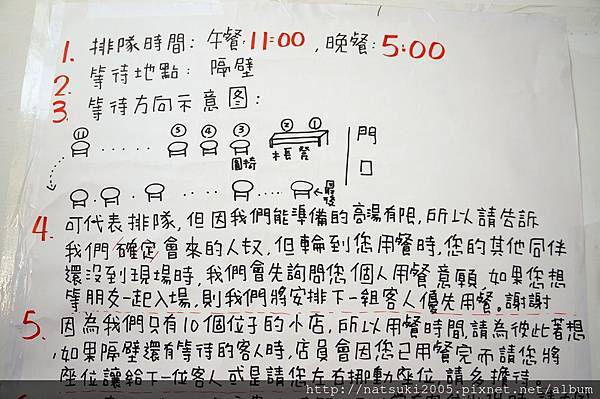 1. 排隊時間: 午餐:11:00,晚餐:5:00
2. 等待地點: 隔壁
3. 等待方向示意图:
⑪ ...... ⑤ ④ ③ ② ①
圓椅 木長凳
門口
4. 可代表排隊,但因我們能準備的高湯有限,所以請告訴
我們確定會來的人奴,但輪到您用餐時,您的其他同伴
還沒到現場時,我們會先詢問您個人用餐意願,如果您想
等朋友一起入場,則我們將安排下一組客人優先用餐。謝謝
5. 因為我們只有10個位子的小店,所以用餐時間,請為彼此著想
,如果隔壁還有等待的客人時,店員會因您已用餐完而請您將
座位讓給下一位客人或是請您左右挪動座位,請多擔待。
http://natsuki2005.pixnet.net/album